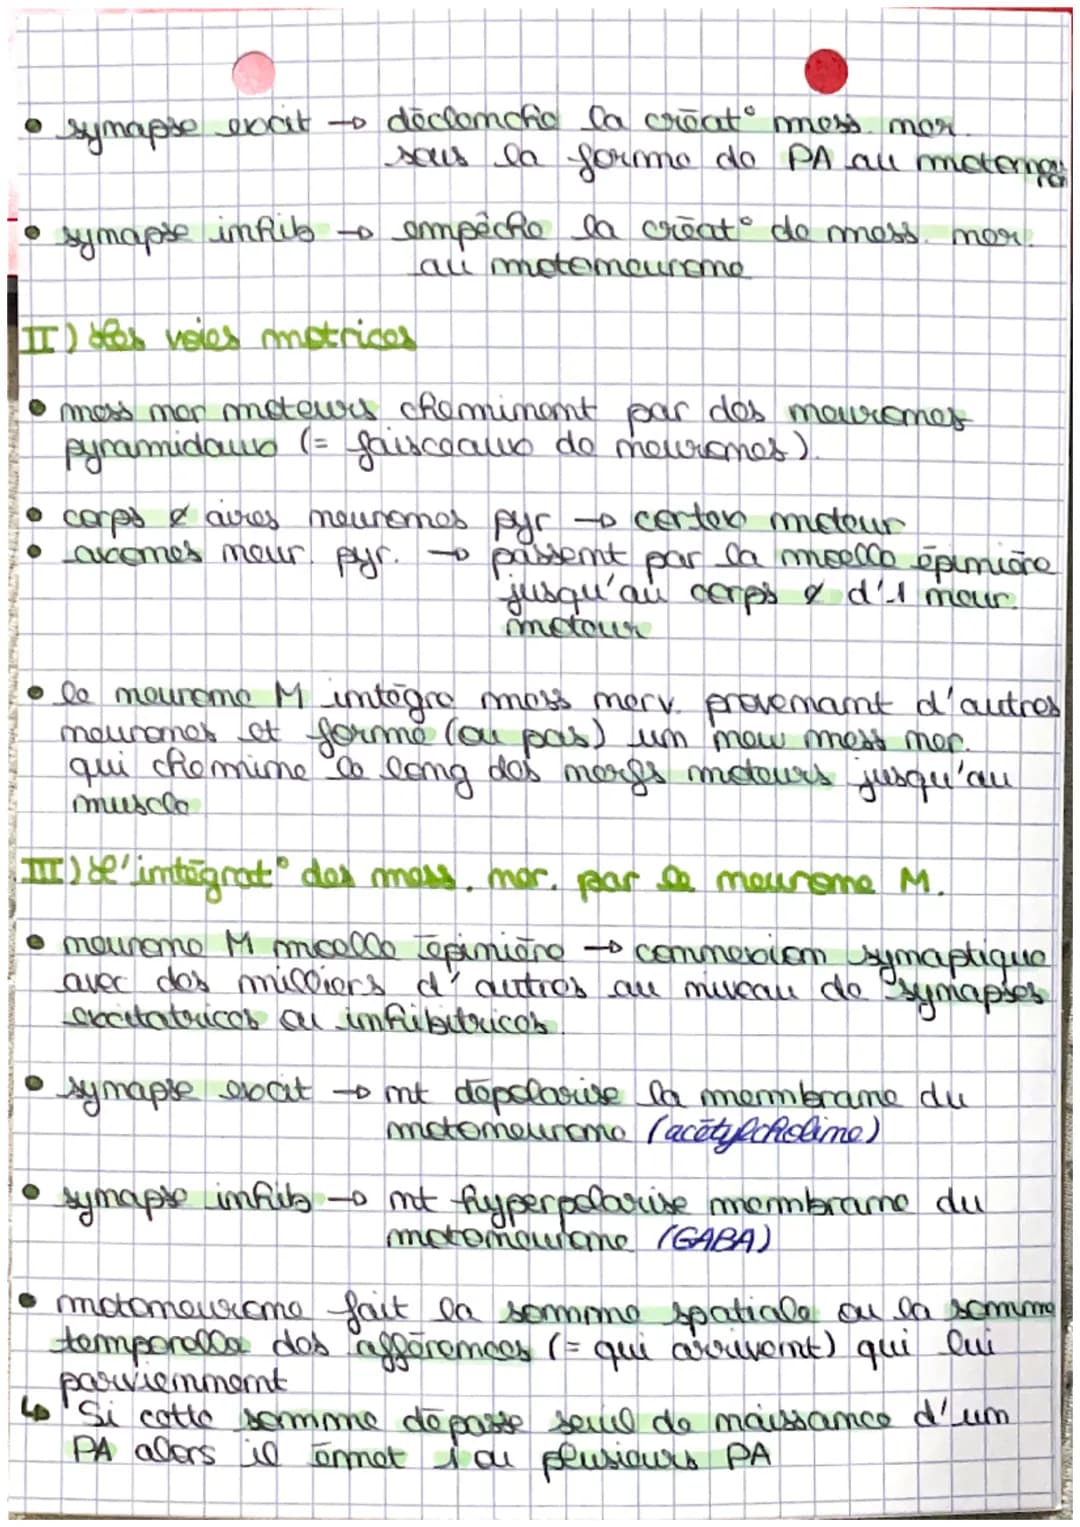 • synapse excit → déclenche la créat° mess. ner.
sous la forme de PA au motoneurone
• synapse inhib → empêche la créat° de mess. ner.
au motoneurone
II) Les voies motrices
• mess ner moteurs cheminent par des neurones
pyramidaux (= faisceaux de neurones).
• corps & aires neurones pyr → cortex moteur
• axones neur. pyr. → passent par la moelle épinière
jusqu'au corps & d'1 neur.
moteur
• le neurone M intègre mess nerv. provenant d'autres
neurones et forme (ou pas) un nouv mess ner.
qui chemine le long des nerfs moteurs jusqu'au
muscle
III) L'intégrat° des mess. ner. par le neurone M.
• neurone M moelle épinière → connexion synaptique
avec des milliers d'autres au niveau de synapses
excitatrices ou inhibitrices
• synapse excit → nt dépolarise la membrane du
motoneurone (acétylcholine)
• synapse inhib → nt hyperpolarise membrane du
motoneurone (GABA)
• motoneurone fait la somme spatiale ou la somme
temporelle des afférences (= qui arrivent) qui lui
parviennent
↳ Si cette somme dépasse seuil de naissance d'un
PA alors il émet 1 ou plusieurs PA